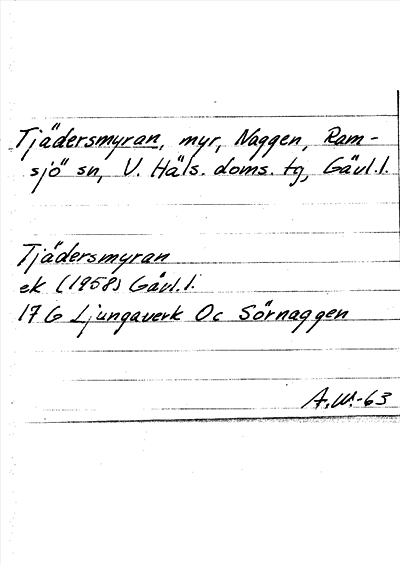 Tjädersmyran, myr, Naggen, Ram-
sjö sn, V. Häls. doms. tg, Gävl. l.
Tjädersmyran
ek (1958) Gävl. l.
17 G Ljungaverk Oc Sörnaggen
A.W.-63